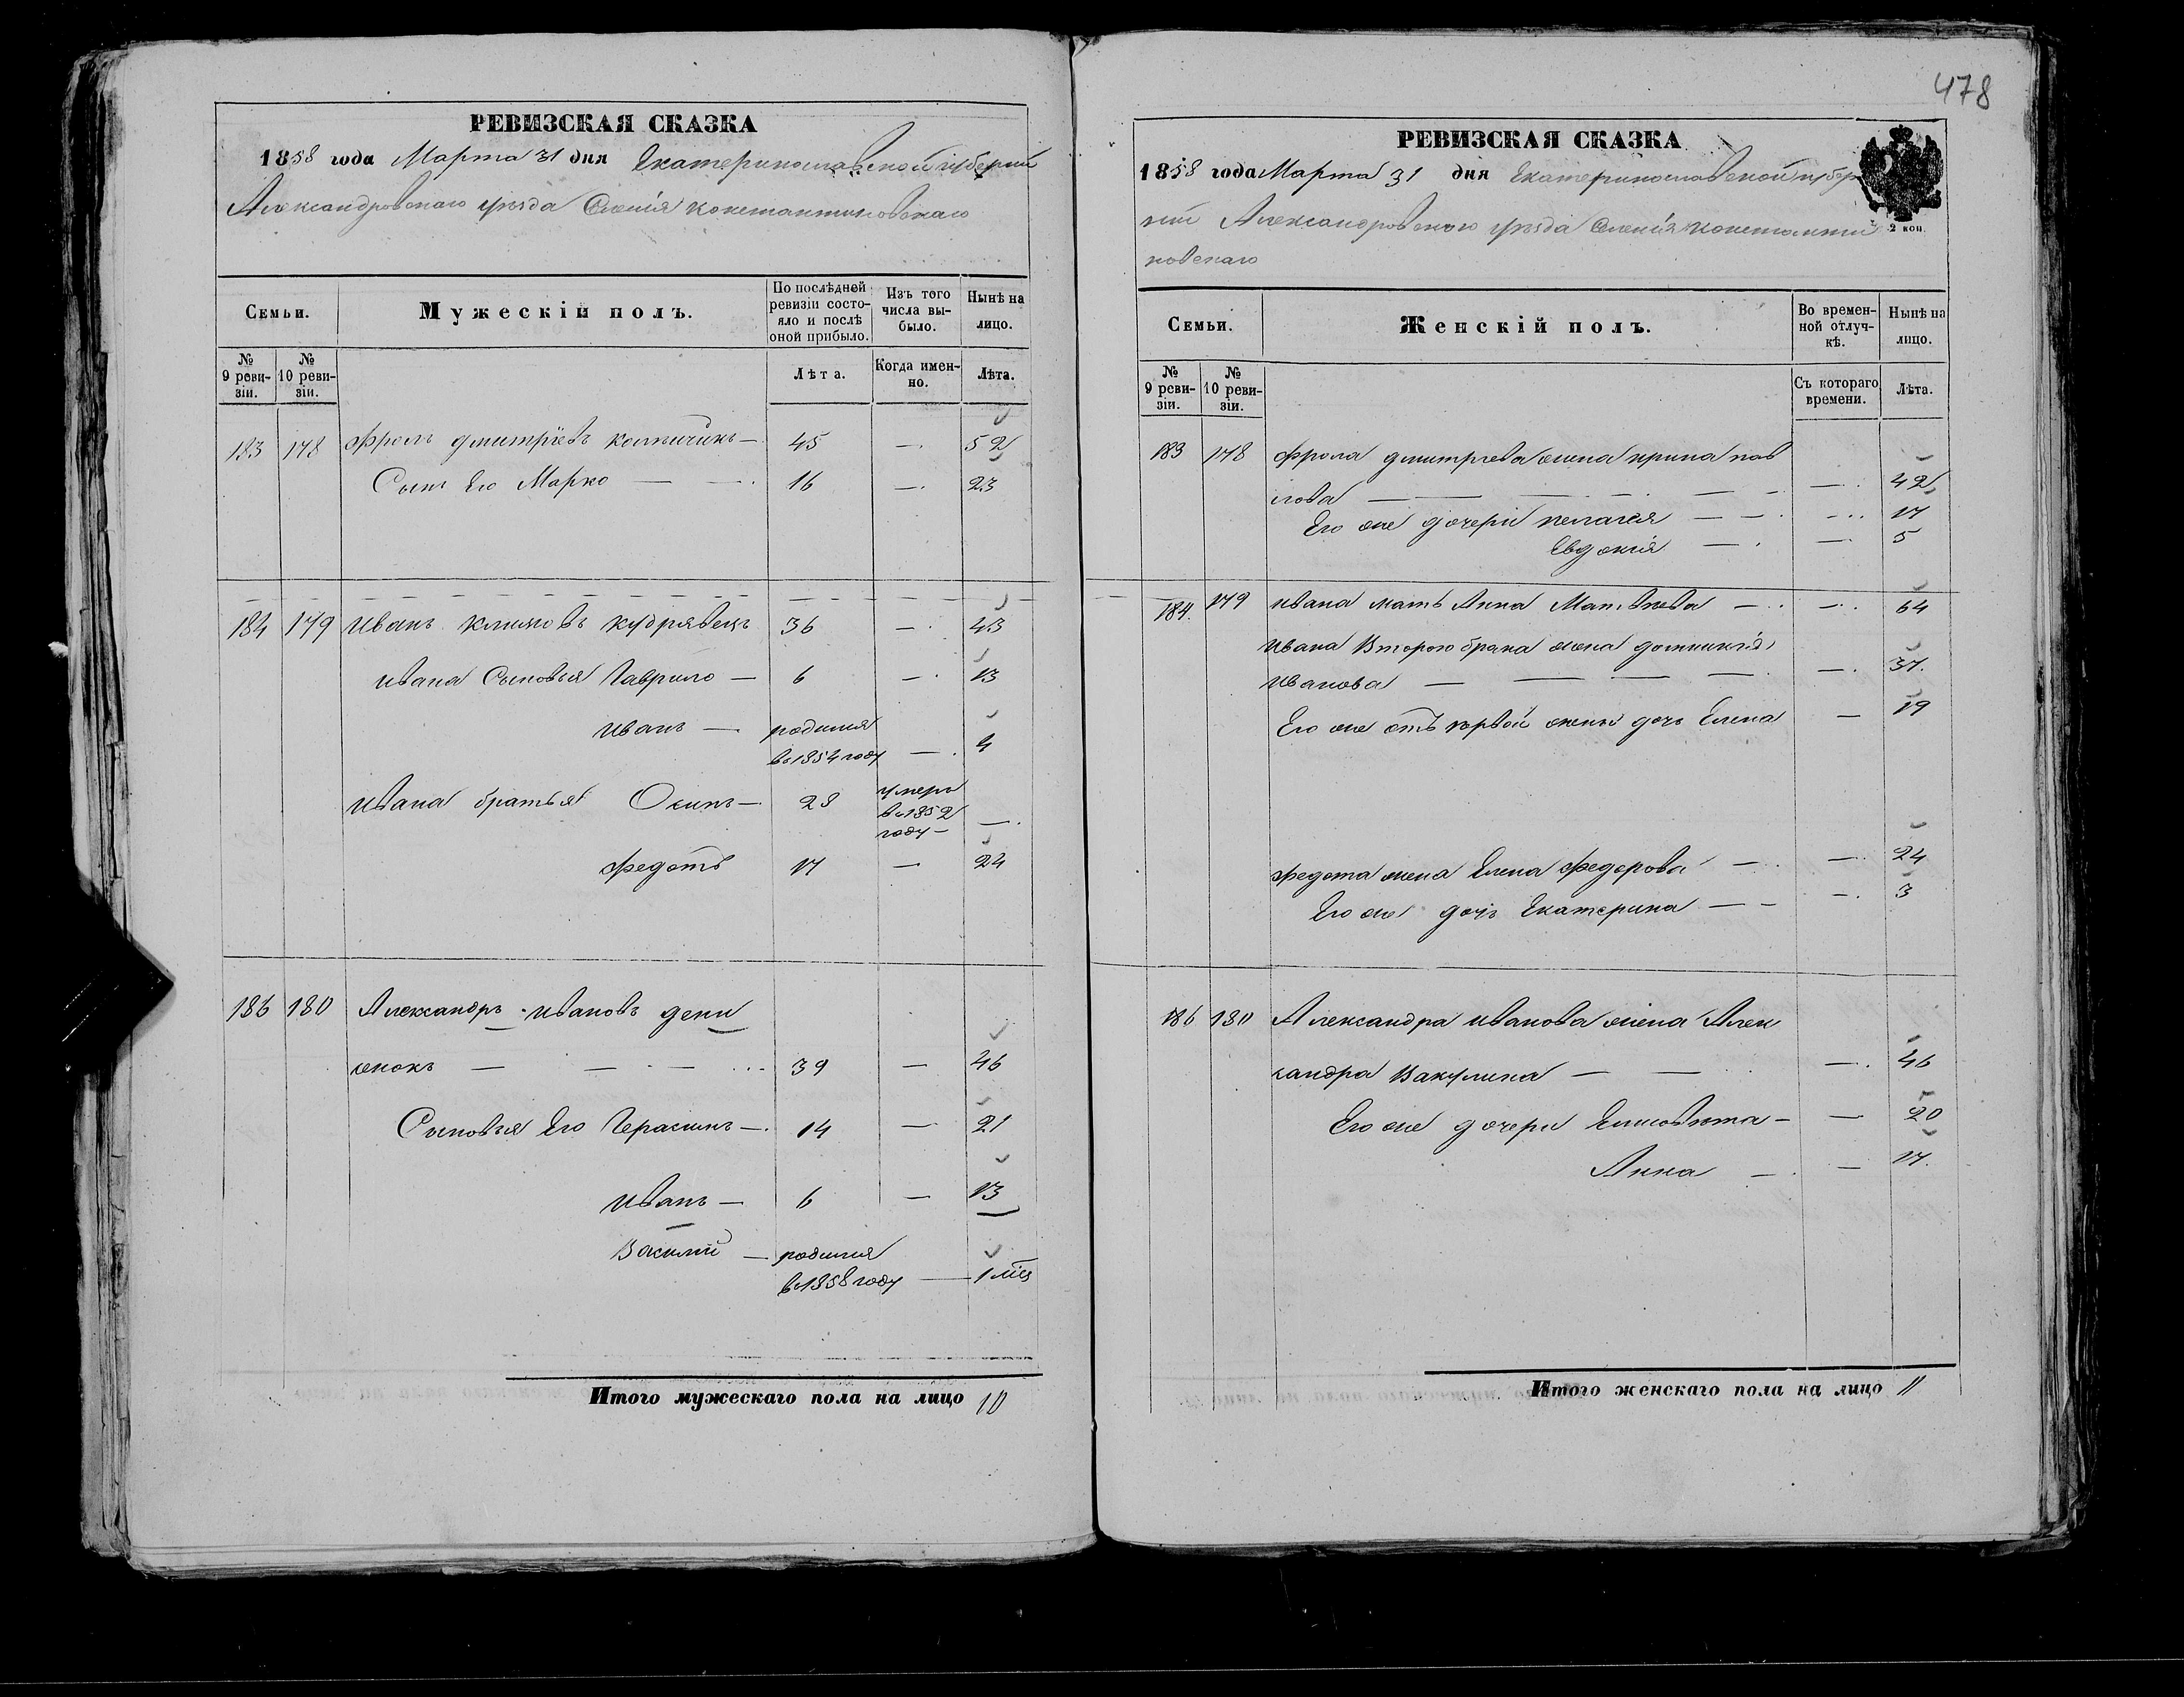 478
РЕВИЗСКАЯ СКАЗКА
1858 года Марта 31 дня Екатеринославской губерніи
Александровскаго уѣзда Селенія Константиновскаго
Семьи.
Мужескій полъ.
По послѣдней ревизіи состояло и послѣ оной прибыло.
Изъ того числа выбыло.
Нынѣ на лицо.
№ 9 ревизіи.
№ 10 ревизіи.
Лѣта.
Когда именно.
Лѣта.
183 178 Фролъ Дмитріевъ — 45 — 52
Сынъ Его Марко — 16 — 23
184 179 Иванъ Климовъ Кудрявецъ 36 — 43
Ивана Сыновья Гаврило — 6 — 13
Иванъ — родился
въ 1854 году — 4
Ивана братья Осипъ — 28 умеръ
въ 1852
году — —
Федотъ 17 — 24
186 180 Александръ Ивановъ Дени
женокъ — 39 — 46
Сыновья Его Герасимъ — 14 — 21
Иванъ — 6 — 13
Василій — родился
въ 1858 году — 1 мѣс
Итого мужескаго пола на лицо 10
РЕВИЗСКАЯ СКАЗКА
1858 года Марта 31 дня Екатеринославской губер
ніи Александровскаго уѣзда Селенія Константи
новскаго
2 коп.
Семьи.
Женскій полъ.
Во временной отлучкѣ.
Нынѣ на лицо.
№ 9 ревизіи.
№ 10 ревизіи.
Съ котораго времени.
Лѣта.
183 178 Фрола Дмитрева жена Ирина Пав
лова — — 42
Его же дочери Пелагея — — 17
Евдокія — — 5
184 179 Ивана мать Анна Матвѣева — — 64
Ивана Втораго брака жена Домникія
Иванова — — 37
Его же отъ первой жены дочь Елена — 19
Федота жена Елена Федорова — — 24
Его же дочь Екатерина — — 3
186 180 Александра Иванова жена Алек
сандра Вакулина — — 46
Его же дочери Елисовета — — 20
Анна — — 17
Итого женскаго пола на лицо 11